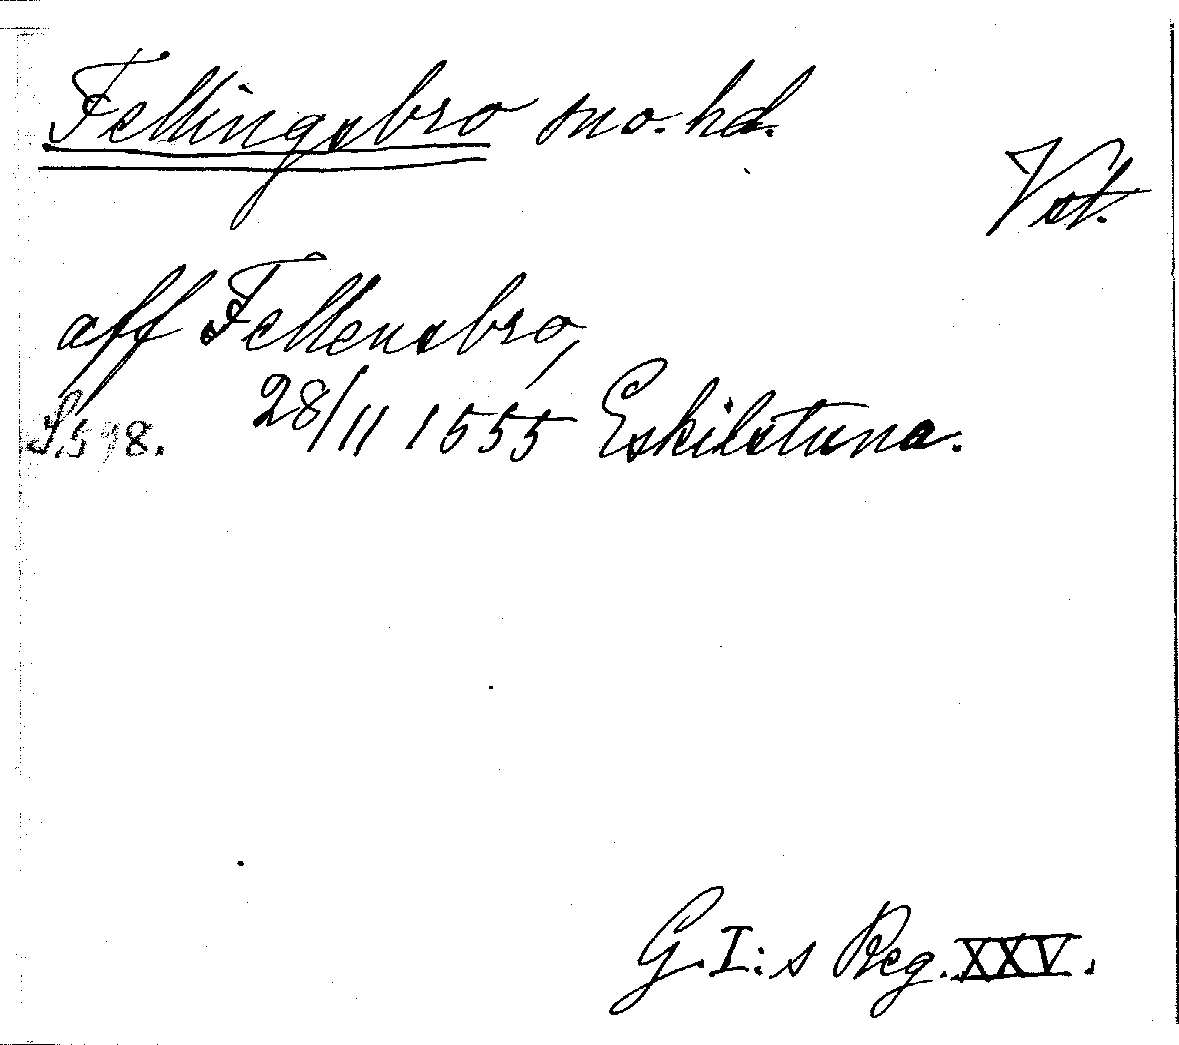 Fellingsbro sno. hd.
Vst.
aff Fellensbro,
S.598. 28/11 1555 Eskilstuna.
G.I:s Reg. XXV.